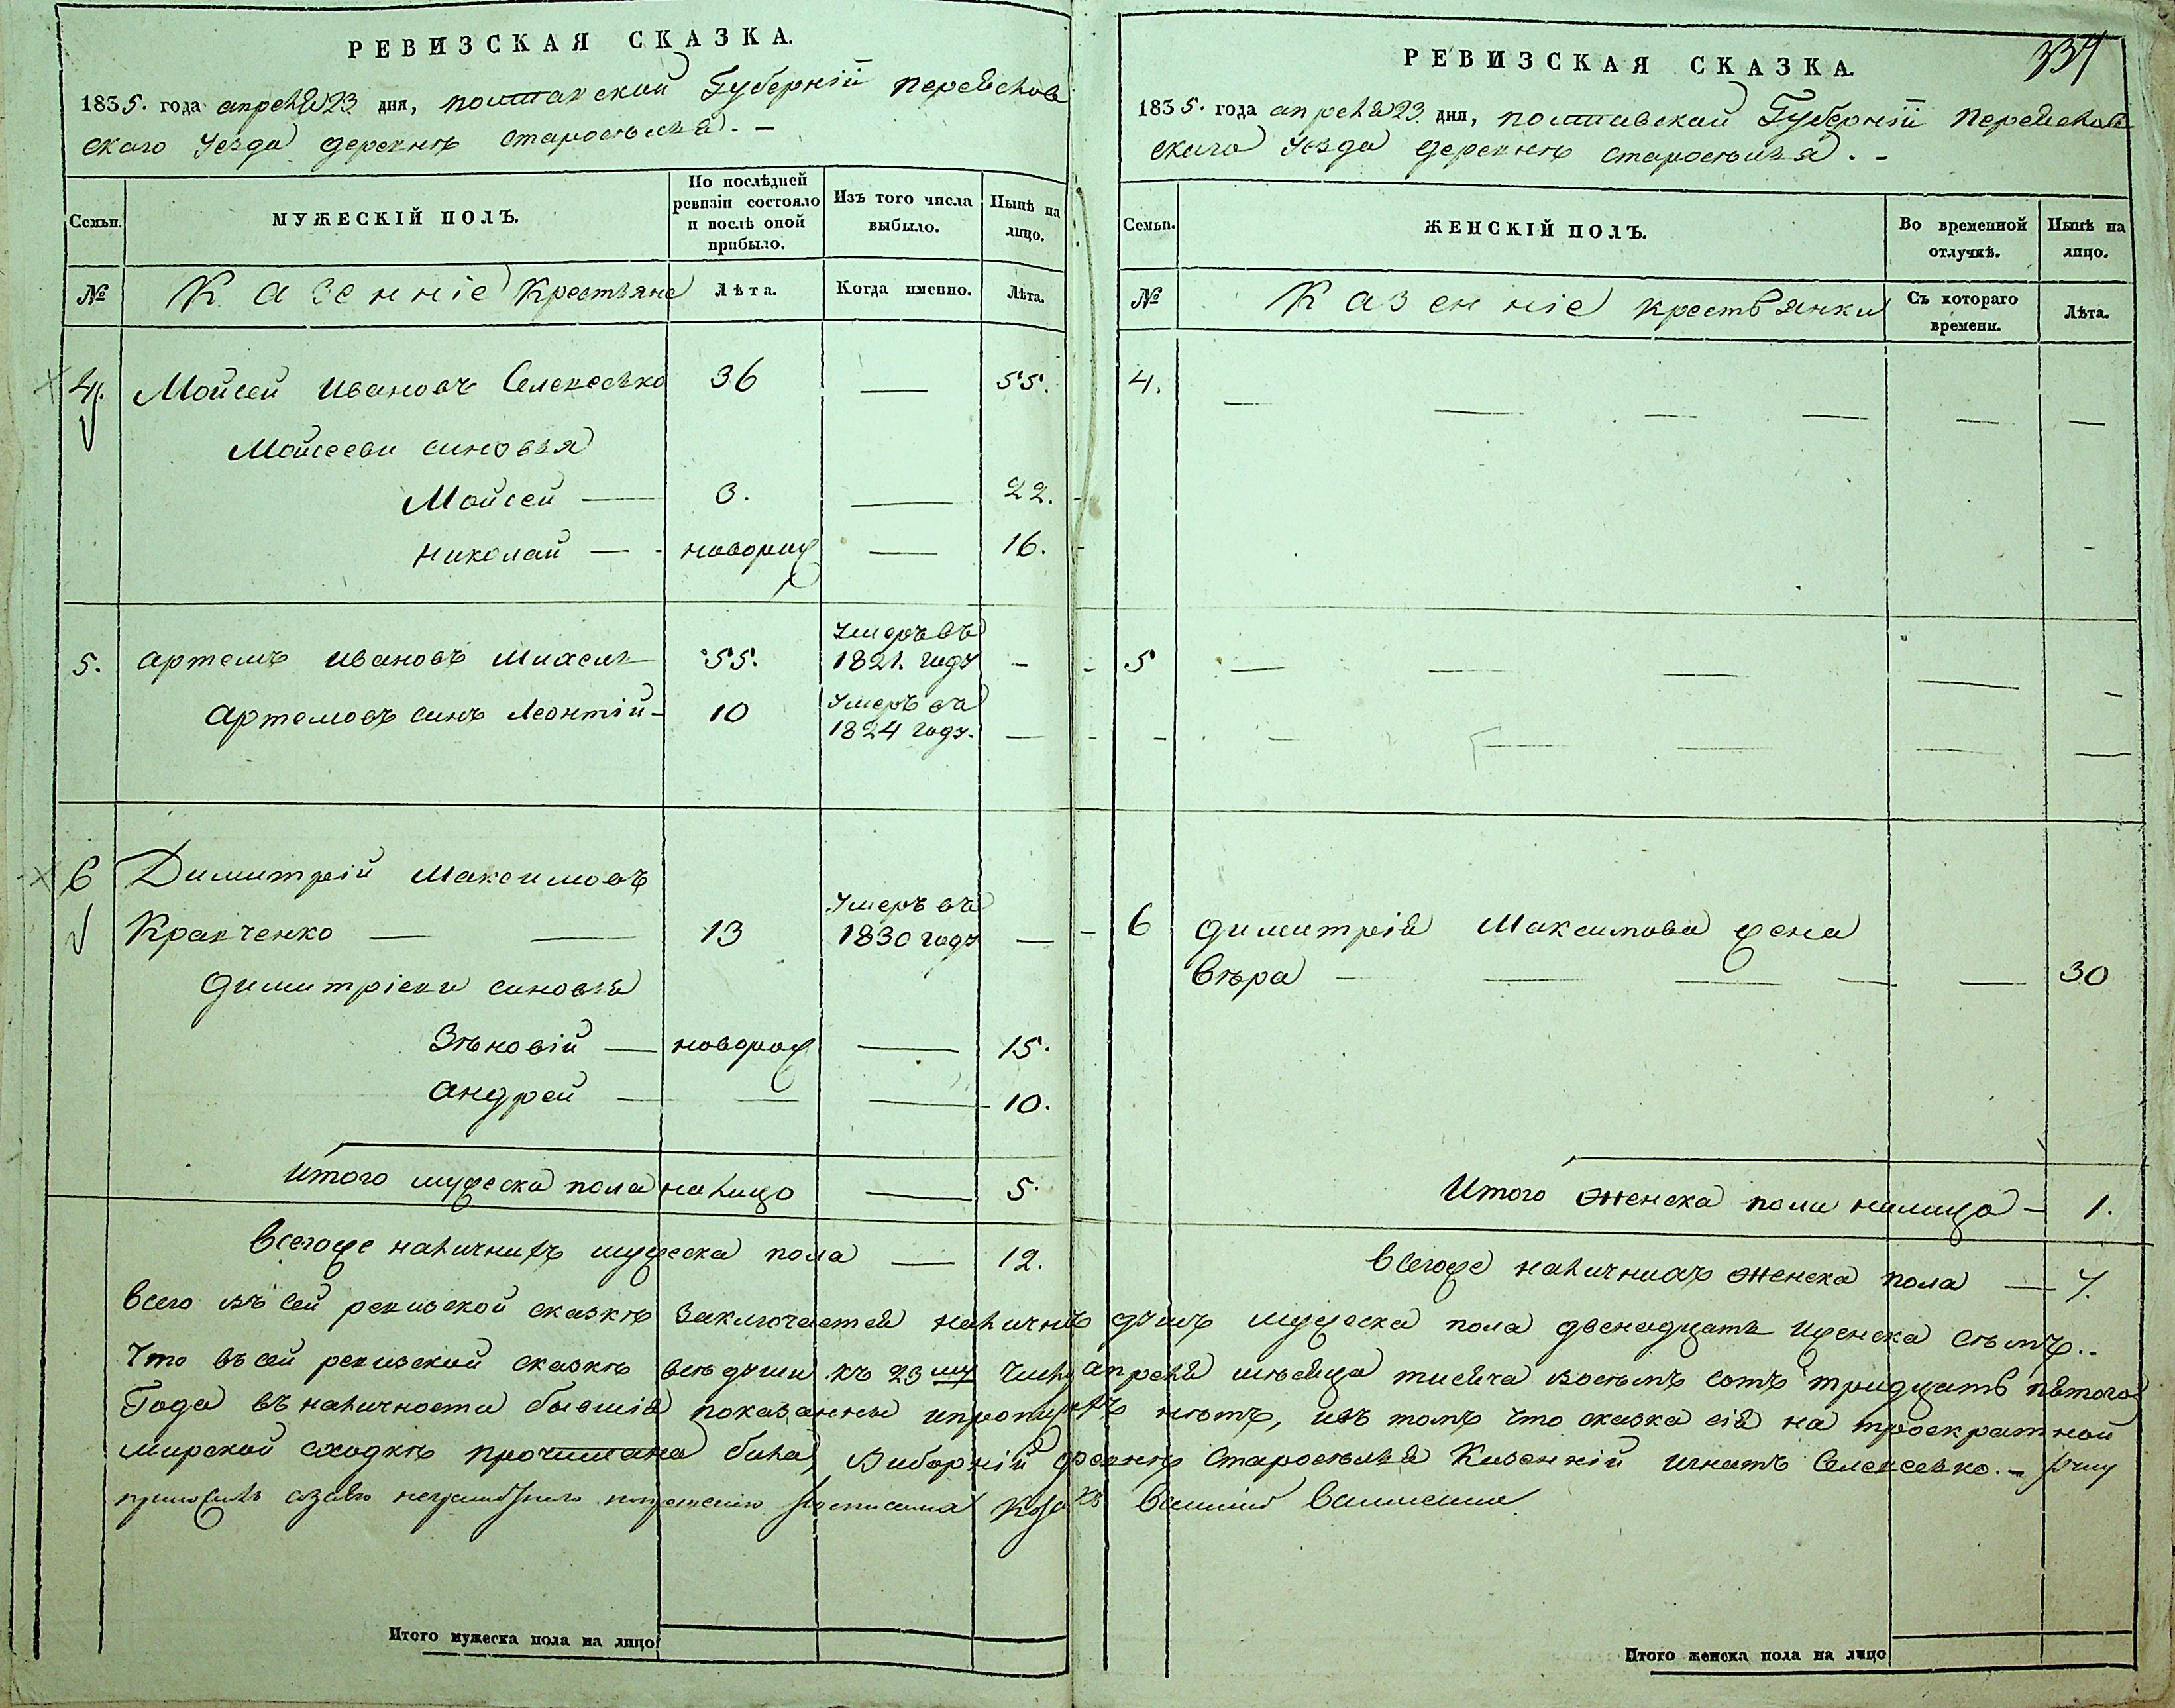 РЕВИЗСКАЯ СКАЗКА.
1835. года апреля 23 дня, полтавской Губерніи переяслов
скаго уезда деревнѣ старосѣлья. –
Семьи.
МУЖЕСКІЙ ПОЛЪ.
По послѣдней ревизіи состояло и послѣ оной прибыло.
Изъ того числа выбыло.
Нынѣ на лицо.
№
Казенніе Крестьяне
Лѣта.
Когда именно.
Лѣта.
4. Мойсей Ивановъ 36 — 55.
Мойсееви синовья
Мойсей — 3. — 22.
Николай — новорож — 16.
5. Артемъ Ивановъ 55. Умеръ въ 1821. году –
Артемовъ синъ Леонтій – 10 Умеръ въ 1824 году. —
6 Димитрій Максимовъ
Кравченко — — 13 Умеръ въ 1830 году —
Димитріеви синовья
Зѣновій — новорож — 15.
Андрей — — — 10.
Итого мужеска пола налицо — 5.
Всегоже наличнихъ мужеска пола — 12.
РЕВИЗСКАЯ СКАЗКА.
1835. года апреля 23 дня, полтавской Губерніи переяслов
скаго уезда деревнѣ старосѣлья. –
Семьи.
ЖЕНСКІЙ ПОЛЪ.
Во временной отлучкѣ.
Нынѣ на лицо.
№
Казенніе крестьянки
Съ котораго времени.
Лѣта.
4. — — — — — —
5 — — — — –
– – — — — —
6 Димитрія Максимова жена
Вѣра — — — — — 30
Итого женска пола налицо – 1.
Всегоже наличнихъ женска пола — 7.
Всего въ сей ревизской сказкѣ заключается наличнихъ душъ мужеска пола двенадцать иженска сѣмь..
Что въ сей ревизской сказкѣ всѣ души къ 23му числу апреля мѣсяца тисяча восѣмъ сотъ тридцать пятого
Года въ наличности бывшія показанны нѣтъ, ивъ томъ что сказка сія на троекратной
мирской сходкѣ прочитана била, Виборній деревнѣ Старосѣлья Казенній Игнатъ –
Итого мужеска пола на лицо
Итого женска пола на лицо